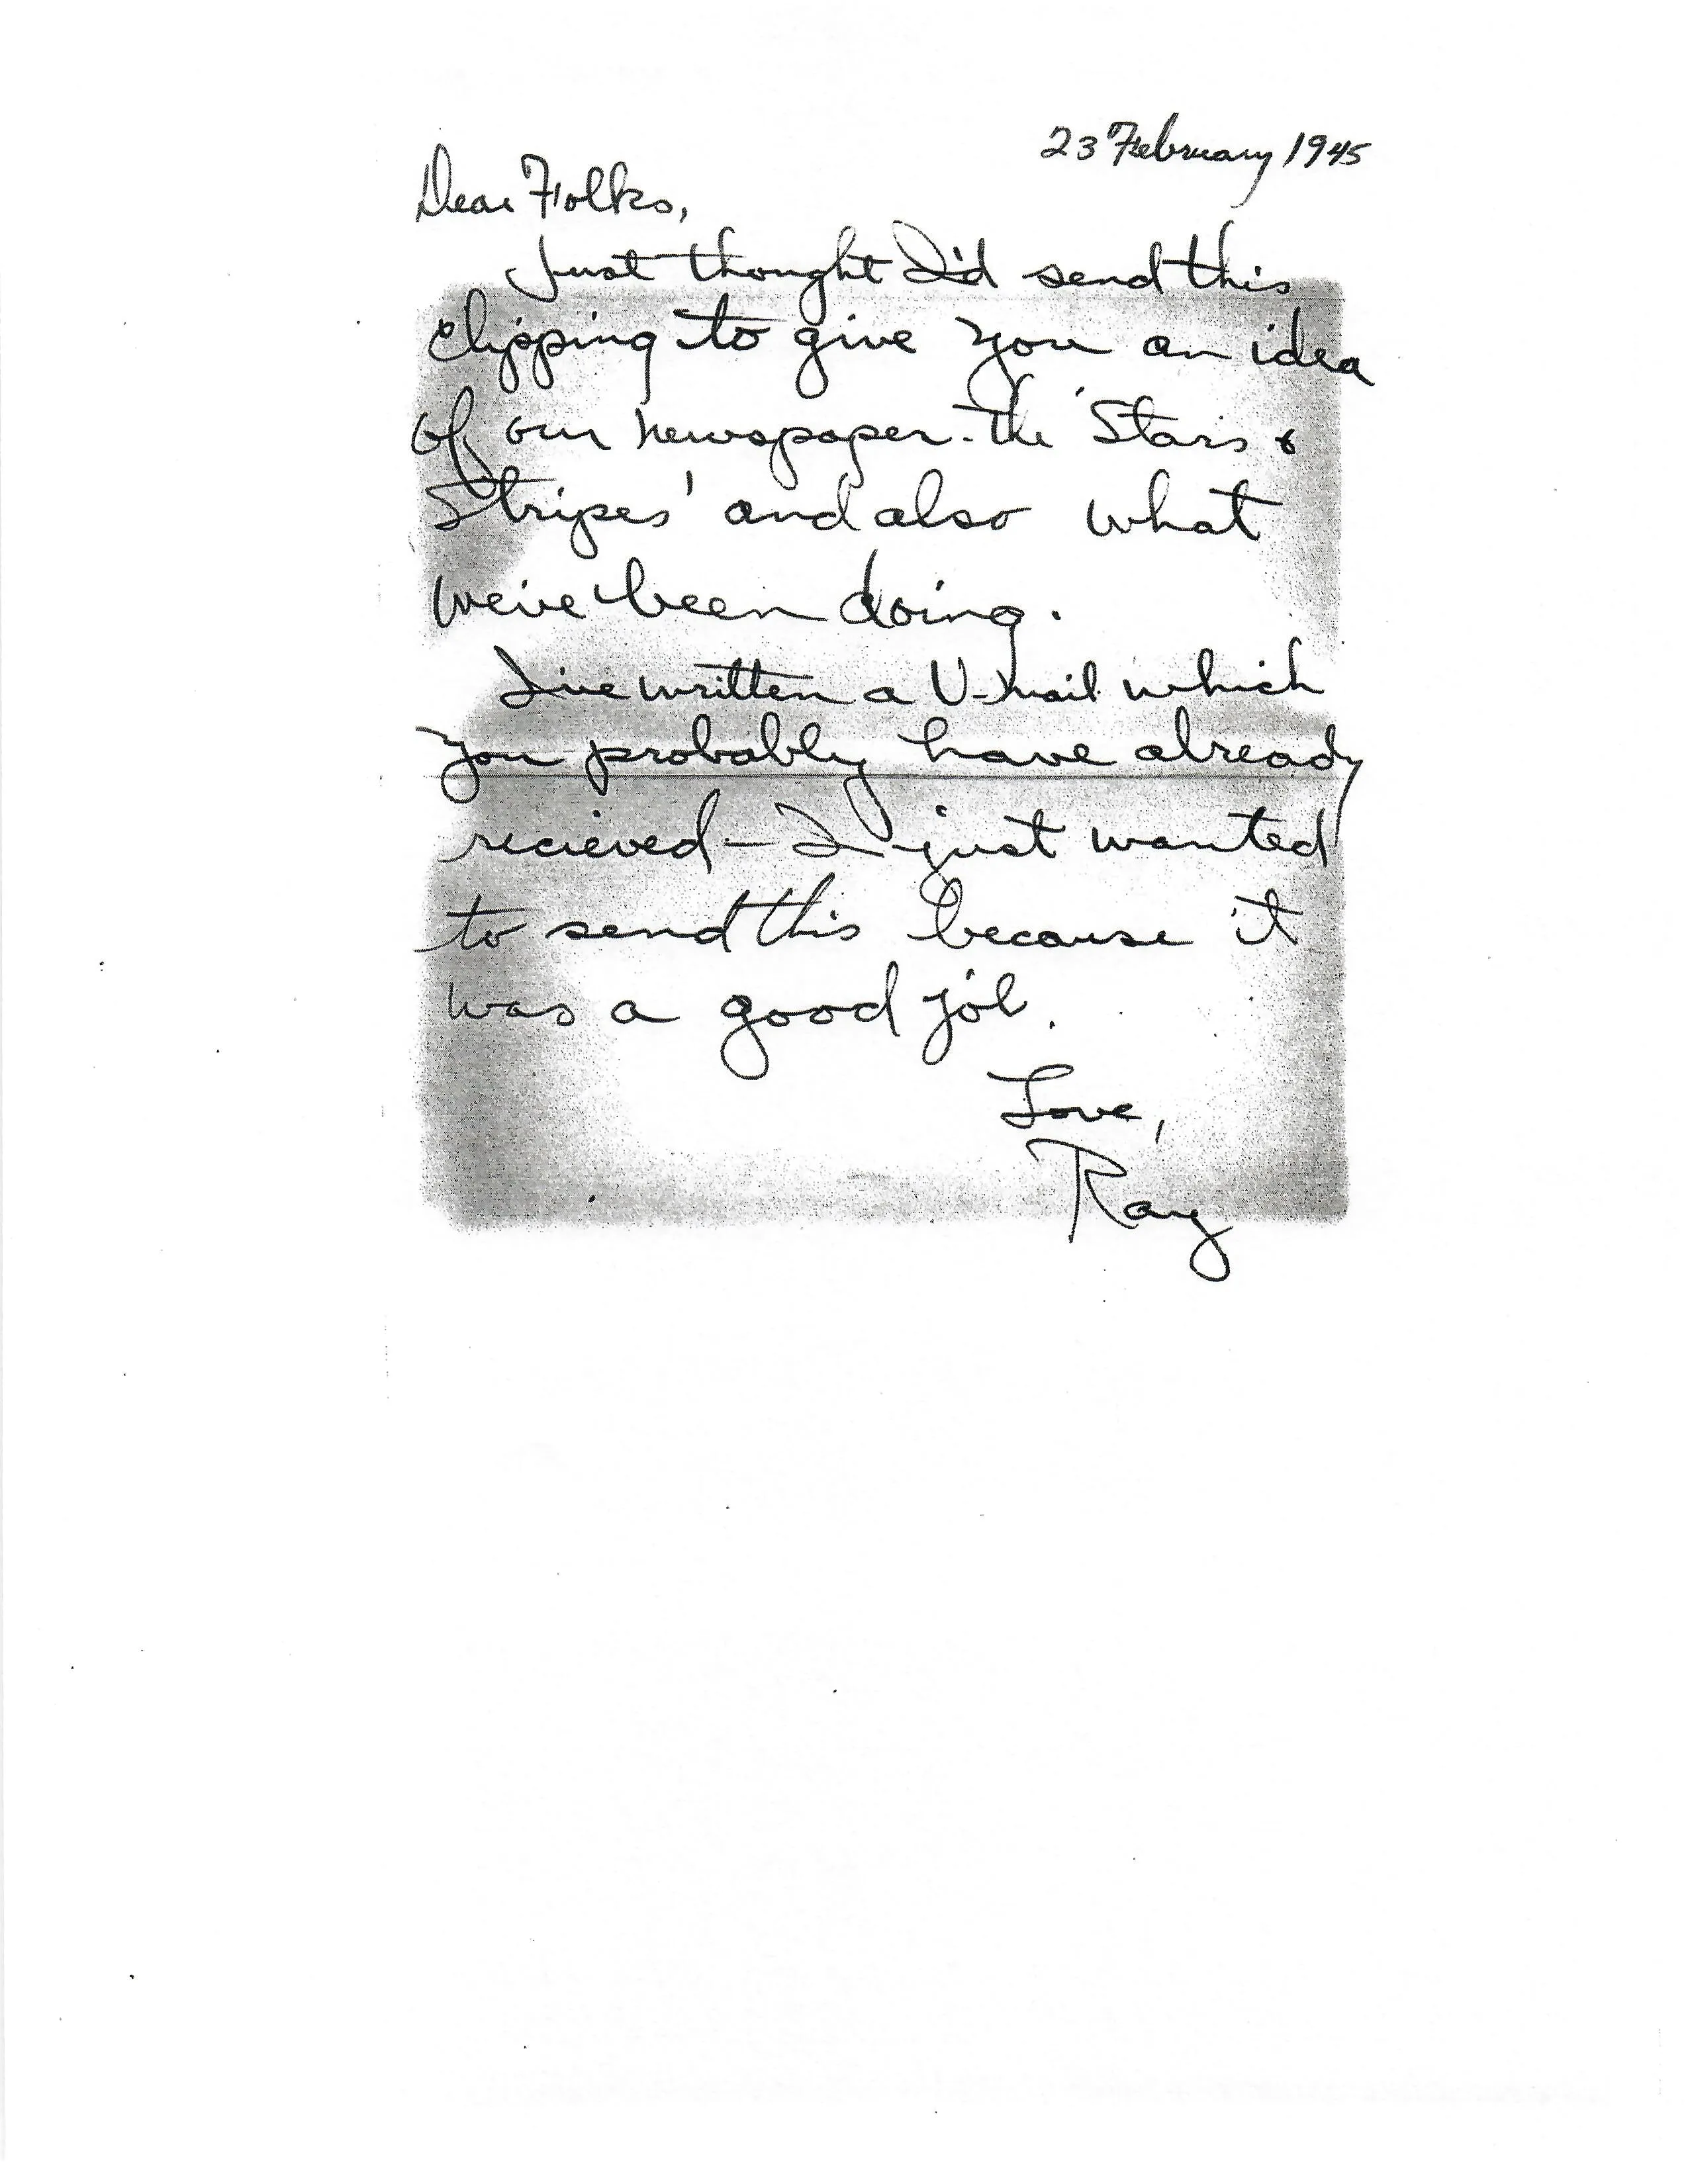 23 February 1945
Dear Folks,
Just thought I'd send this
clipping to give you an idea
of our newspaper - the 'Stars &
Stripes' and also what
we've been doing.
I've written a V-mail which
you probably have already
recieved - I just wanted
to send this because it
was a good job.
Love,
Ray